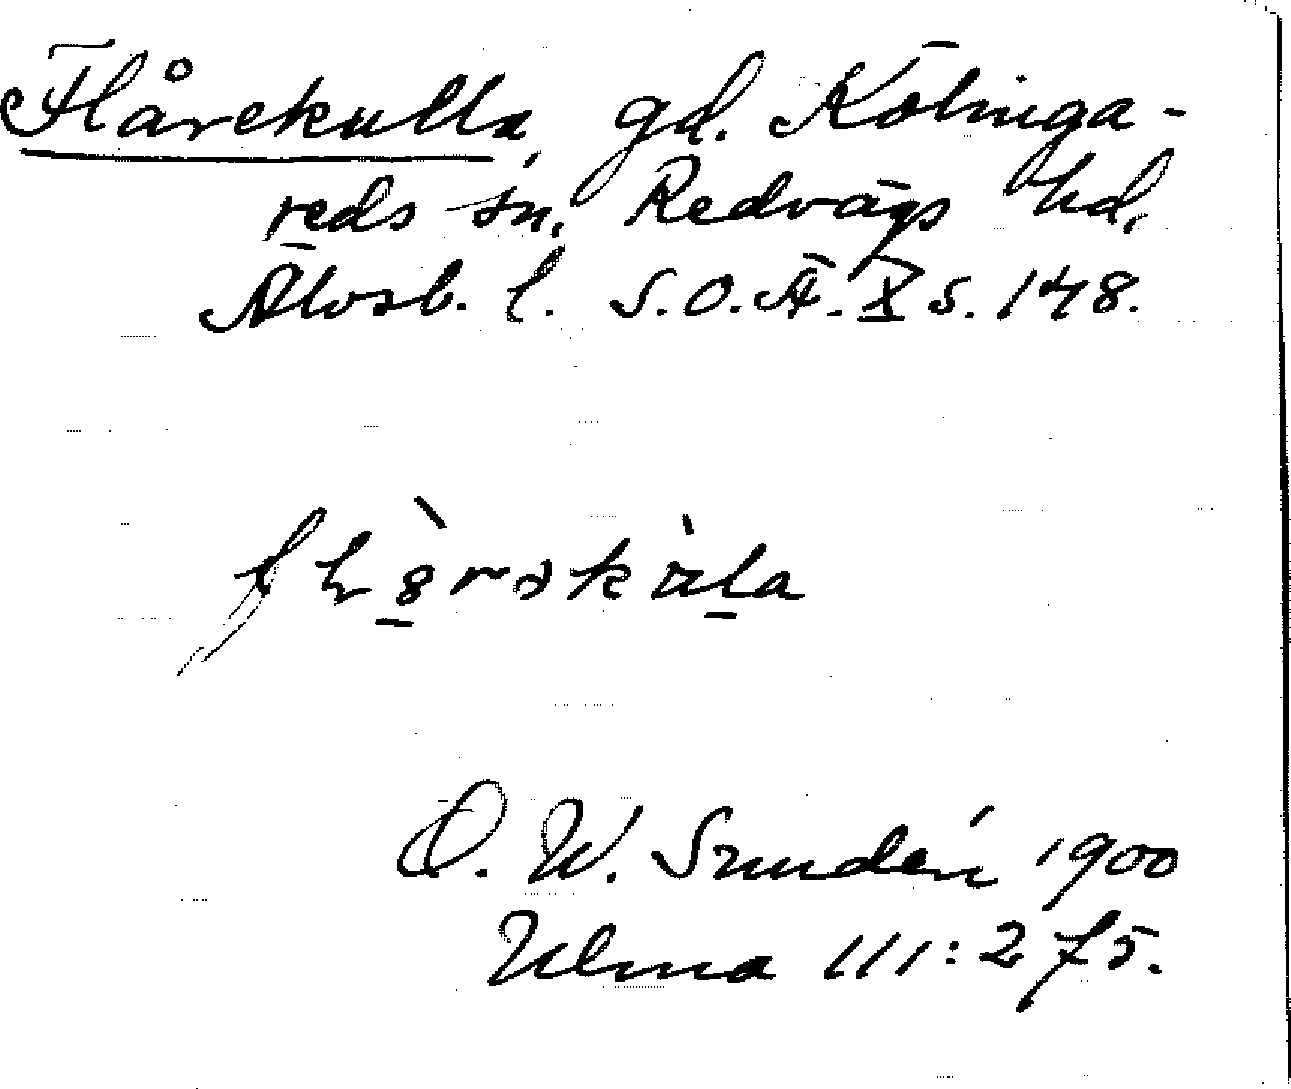 Flårekulla, gd. Kölinga-
reds sn. Redvägs hd.
Älvsb. l. S.O.Ä. X s. 148.
O. W. Sundén 1900
Ulma 111:275.